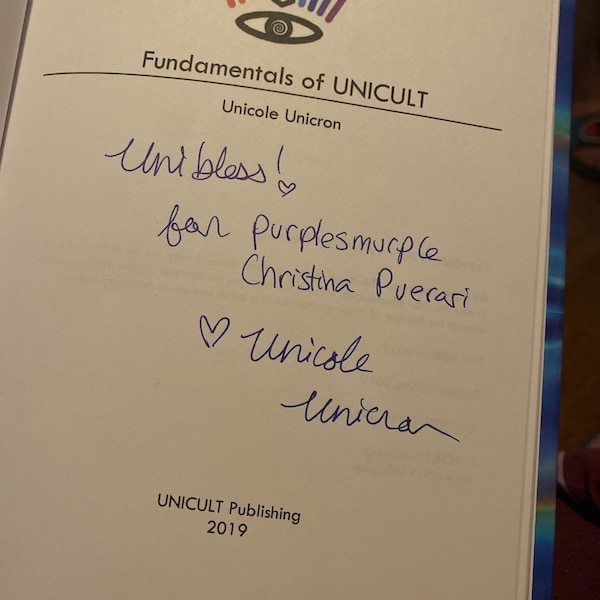 Fundamentals of UNICULT
Unicole Unicron
Unibless!
for purplesmurple
Christina Puerari
Unicole
Unicron
UNICULT Publishing
2019